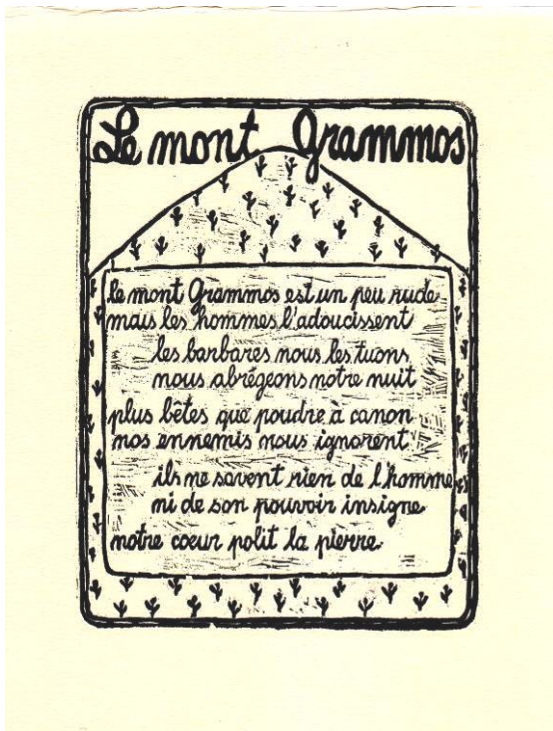 Le mont Grammos
le mont Grammos est un peu rude
mais les hommes l'adoucissent
les barbares nous les tuons
nous abrégeons notre nuit
plus bêtes que poudre à canon
nos ennemis nous ignorent
ils ne savent rien de l'homme
ni de son pouvoir insigne
notre coeur polit la pierre.